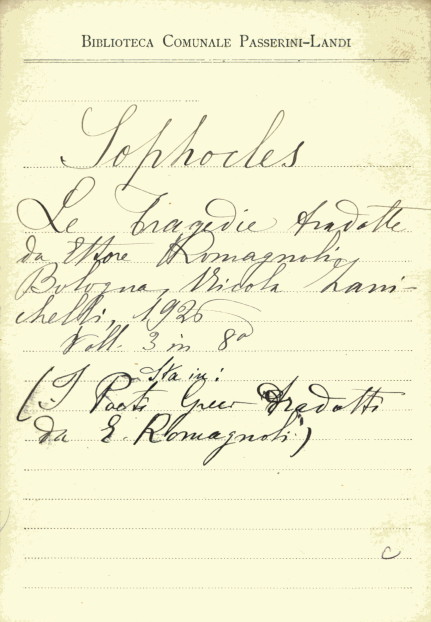 BIBLIOTECA COMUNALE PASSERINI-LANDI
Sophocles
Le Tragedie tradotte
da Ettore Romagnoli,
Bologna, Nicola Zani-
chelli, 1926
Voll. 3 in 8°
Sta in:
(I Poeti Greci tradotti
da E. Romagnoli.)
c